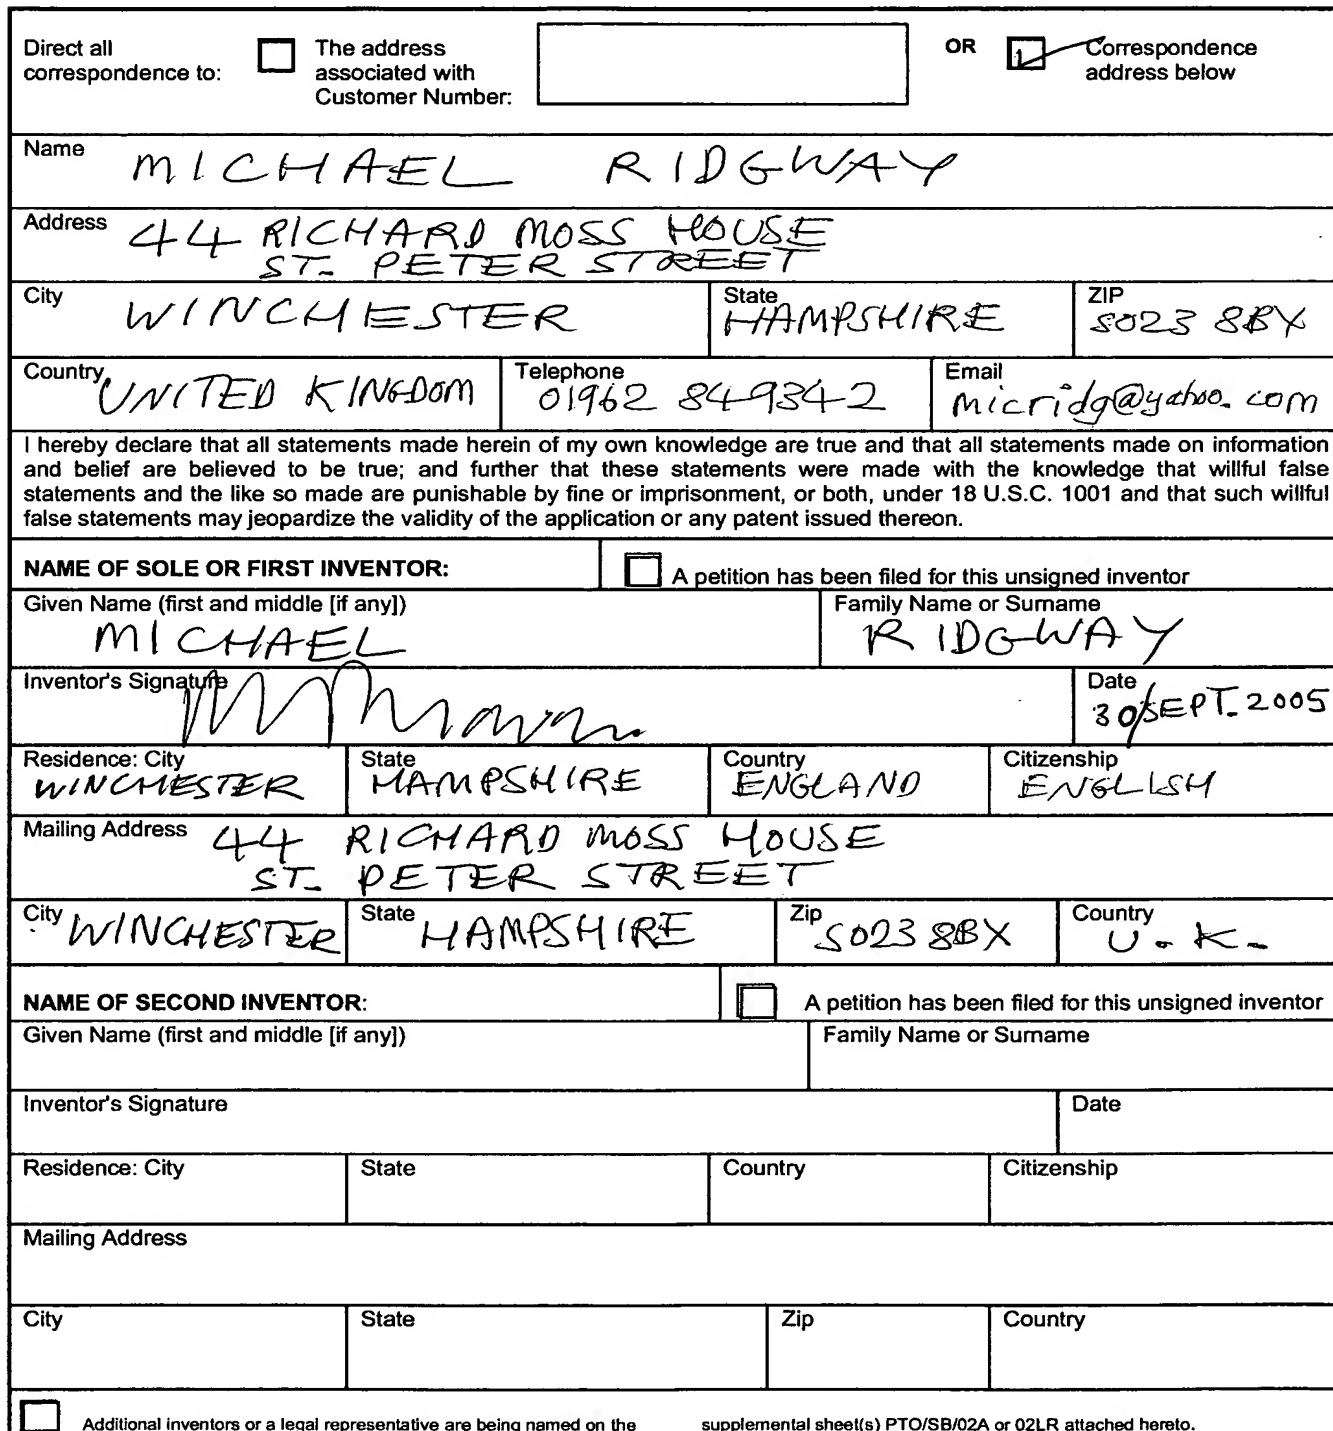 Direct all The address OR Correspondence
correspondence to: associated with address below
Customer Number:
Name MICHAEL RIDGWAY
Address 44 RICHARD MOSS HOUSE
ST. PETER STREET
City State ZIP
WINCHESTER HAMPSHIRE SO23 8BX
Country Telephone Email
UNITED KINGDOM 01962 849342 micridg@yahoo.com
I hereby declare that all statements made herein of my own knowledge are true and that all statements made on information
and belief are believed to be true; and further that these statements were made with the knowledge that willful false
statements and the like so made are punishable by fine or imprisonment, or both, under 18 U.S.C. 1001 and that such willful
false statements may jeopardize the validity of the application or any patent issued thereon.
NAME OF SOLE OR FIRST INVENTOR: A petition has been filed for this unsigned inventor
Given Name (first and middle [if any]) Family Name or Surname
MICHAEL RIDGWAY
Inventor's Signature Date
30/SEPT. 2005
Residence: City State Country Citizenship
WINCHESTER HAMPSHIRE ENGLAND ENGLISH
Mailing Address 44 RICHARD MOSS HOUSE
ST. PETER STREET
City WINCHESTER State HAMPSHIRE Zip SO23 8BX Country U.K.
NAME OF SECOND INVENTOR: A petition has been filed for this unsigned inventor
Given Name (first and middle [if any]) Family Name or Surname
Inventor's Signature Date
Residence: City State Country Citizenship
Mailing Address
City State Zip Country
Additional inventors or a legal representative are being named on the supplemental sheet(s) PTO/SB/02A or 02LR attached hereto.